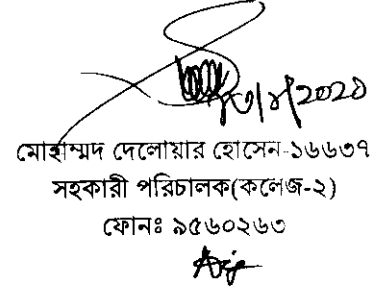 মোহাম্মদ দেলোয়ার হোসেন-১৬৬৩৭
সহকারী পরিচালক(কলেজ-২)
ফোনঃ ৯৫৬০২৬৩